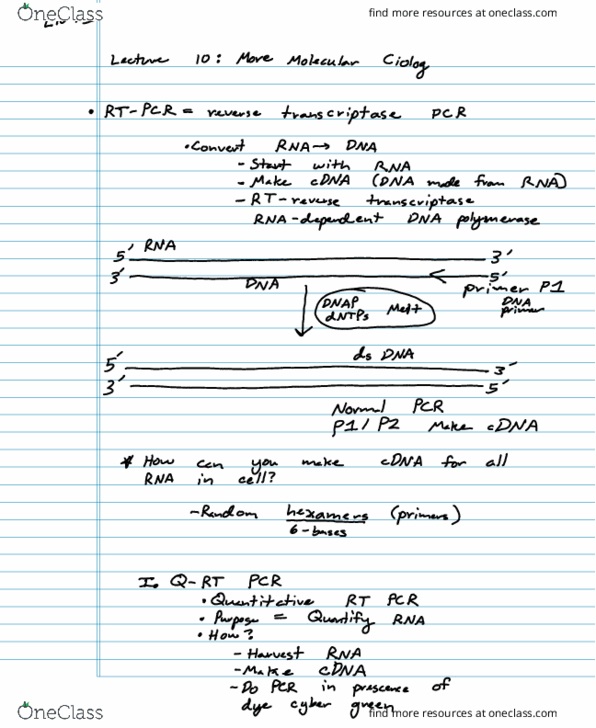 OneClass
find more resources at oneclass.com
Lecture 10: More Molecular Ciolog
• RT-PCR = reverse transcriptase PCR
• Convert RNA → DNA
- Start with RNA
- Make cDNA (DNA made from RNA)
- RT-reverse transcriptase
RNA-dependent DNA polymerase
5' RNA 3'
3' DNA 5'
primer P1
DNA primer
DNAP
dNTPs Melt
ds DNA
5' 3'
3' 5'
Normal PCR
P1/P2 Make cDNA
* How can you make cDNA for all
RNA in cell?
-Random hexamers (primers)
6-bases
I. Q-RT PCR
• Quantitative RT PCR
• Purpose = Quantify RNA
• How?
- Harvest RNA
- Make cDNA
- Do PCR in prescence of
dye cyber green
OneClass
find more resources at oneclass.com